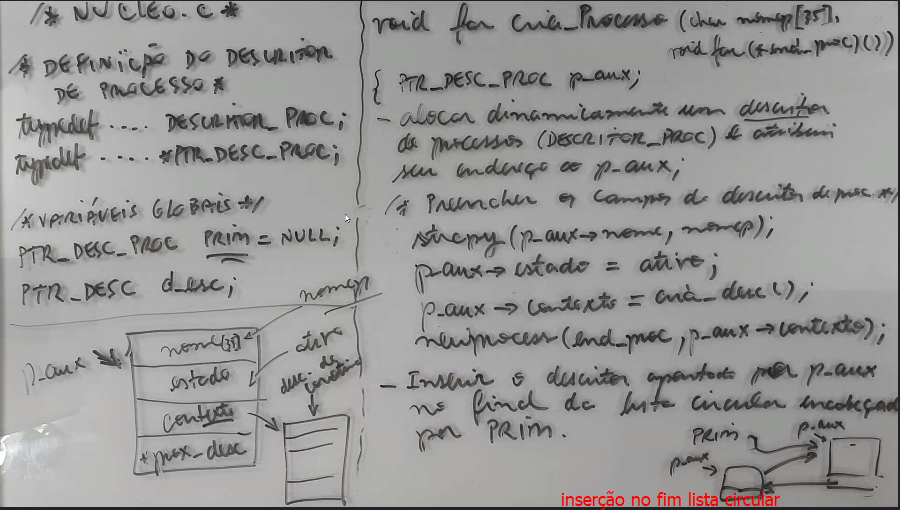 /* NUCLEO.C *
/* DEFINIÇÃO DO DESCRITOR
DE PROCESSO *
typedef .... DESCRITOR_PROC;
typedef ..... *PTR_DESC_PROC;
/*VARIÁVEIS GLOBAIS*/
PTR_DESC_PROC PRIM = NULL;
PTR_DESC d_esc;
nomep
p_aux
nome[35]
estado
contexto
*prox_desc
ativo
desc. de
void far cria_Processo (char nomep[35],
void far (*end_proc)())
{ PTR_DESC_PROC p_aux;
- alocar dinamicamente um descritor
de processos (DESCRITOR_PROC) e atribuir
seu endereço ao p_aux;
/* Preencher os campos do descritor de proc. */
strcpy(p_aux→nome, nomep);
p_aux→estado = ativo;
p_aux→contexto = cria_desc();
newprocess(end_proc, p_aux→contexto);
- Inserir o descritor apontado por p_aux
no final da lista circular encabeçada
por PRIM.
PRIM
p_aux
p_aux
inserção no fim lista circular